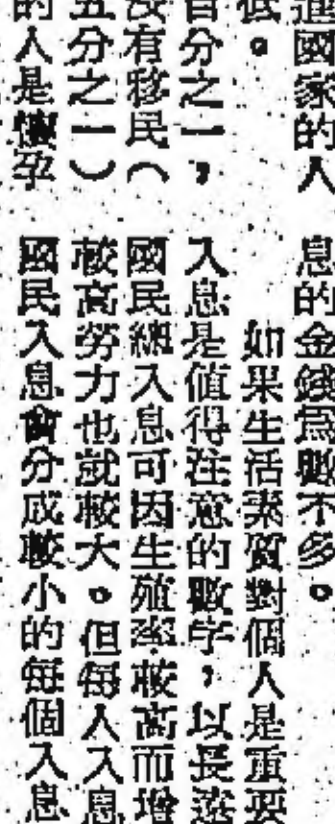 國家的人
低。
百分之一，
沒有移民（
五分之一）
的人是懷孕
息的金錢為數不多。
如果生活素質對個人是重要
入息是值得注意的數字，以長遠
國民總入息可因生殖率較高而增
較高勞力也就較大。但每人入息
國民入息會分成較小的每個入息